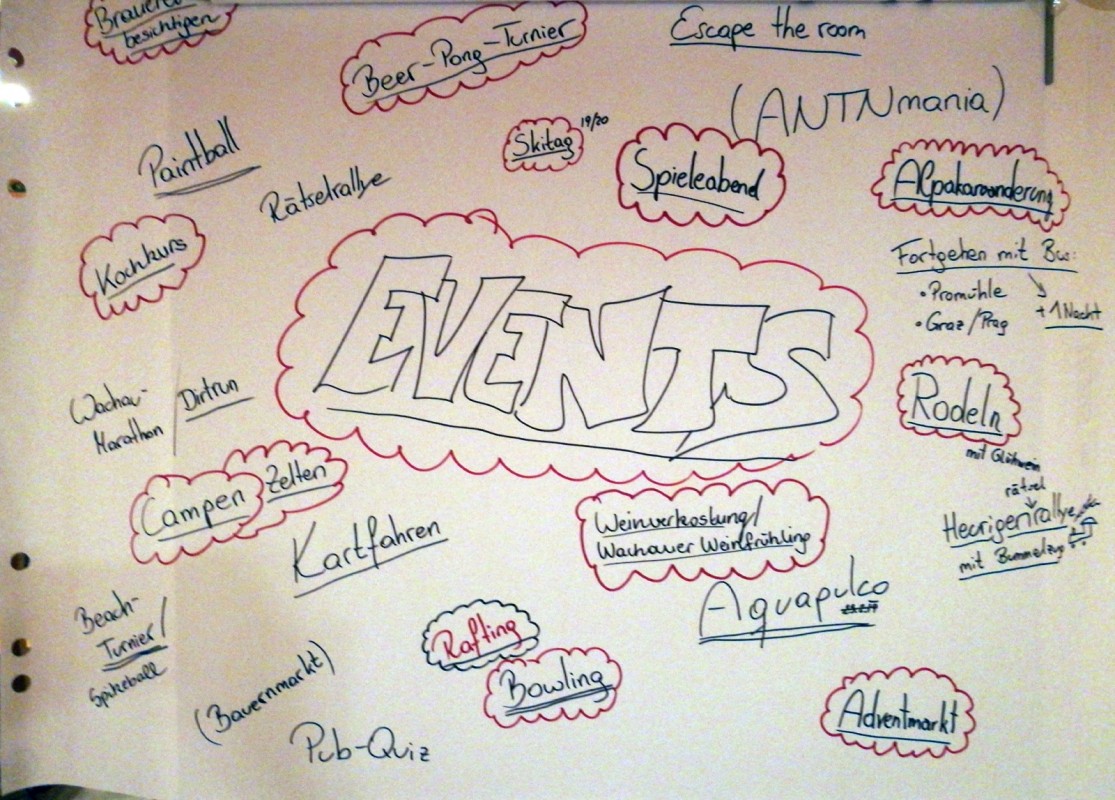 Brauerei
besichtigen
Beer-Pong-Turnier
Escape the room
(ANTNmania)
Paintball
Rätselrallye
Skitag 19/20
Spieleabend
Alpakawanderung
Kochkurs
EVENTS
Fortgehen mit Bus:
• Promühle
• Graz/Prag
+ 1 Nacht
Wachau-
Marathon
Dirtrun
Rodeln
mit Glühwein
Campen
Zelten
Kartfahren
Weinverkostung/
Wachauer Weinfrühling
rätsel
Heurigenrallye
mit Bummelzug
Aquapulco
Beach-
Turnier/
Spikeball
Rafting
Bowling
(Bauernmarkt)
Pub-Quiz
Adventmarkt